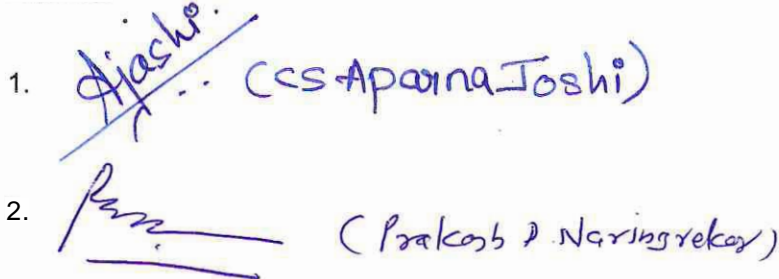 1. Ajoshi. (CS Aparna Joshi)
2. (Prakash P. Naringrekar)